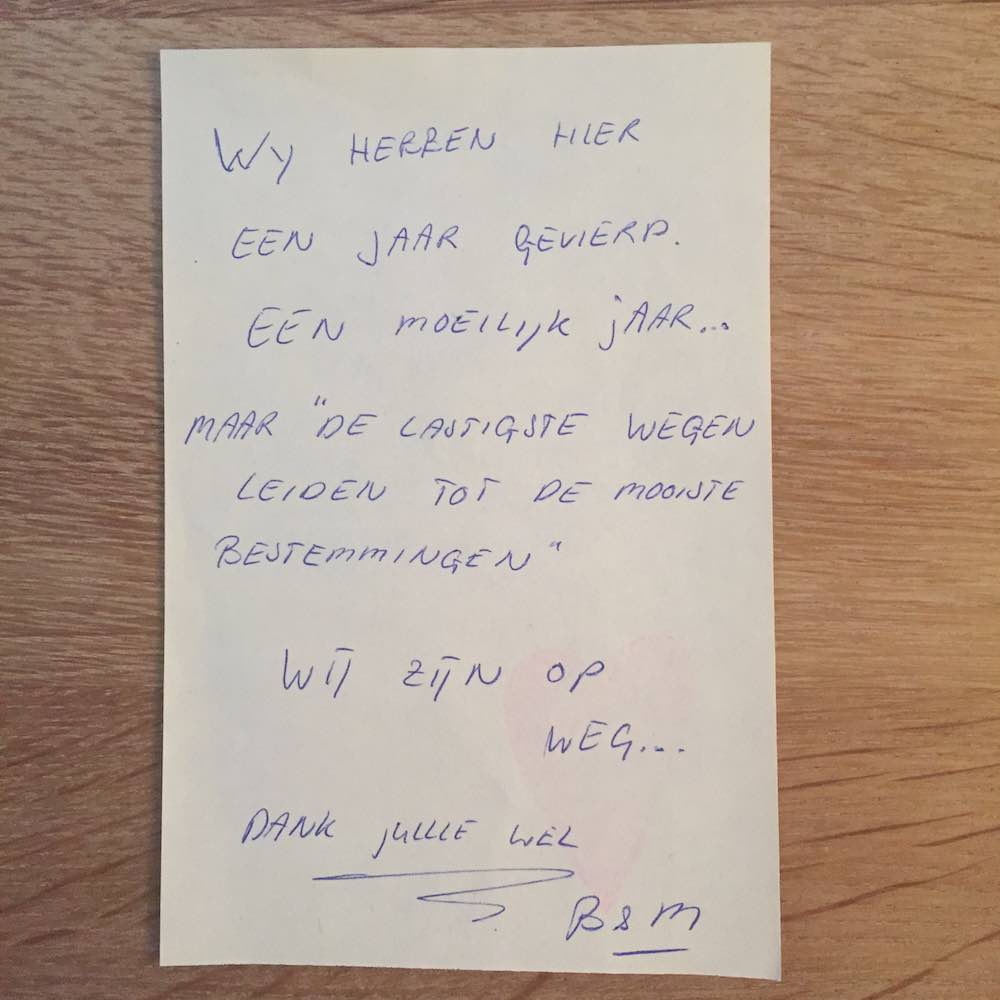 WY HEBBEN HIER
EEN JAAR GEVIERD.
EEN MOEILIJK jAAR...
MAAR "DE LASTIGSTE WEGEN
LEIDEN TOT DE MOOISTE
BESTEMMINGEN"
WIJ ZIJN OP
WEG...
DANK jULLIE WEL
B & M